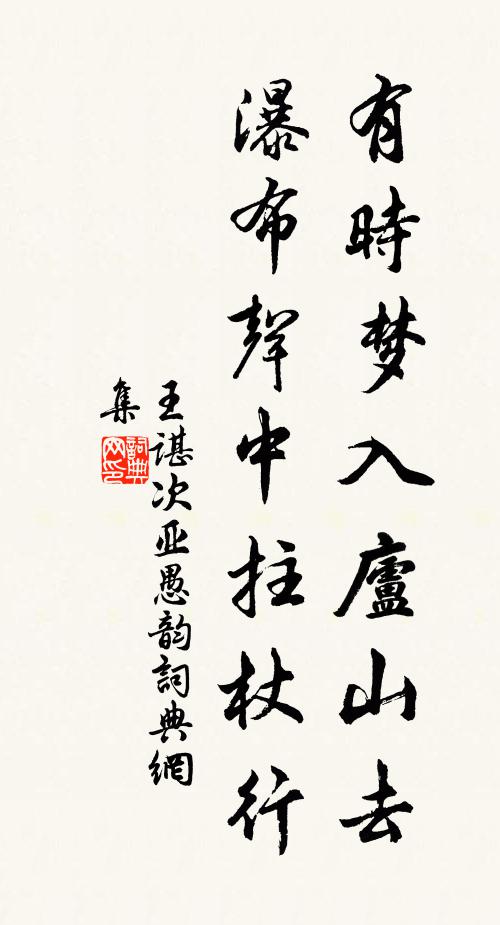 有時梦入廬山去
瀑布聲中拄杖行
王諶次亚愚韵詞典網
集
詞典网印